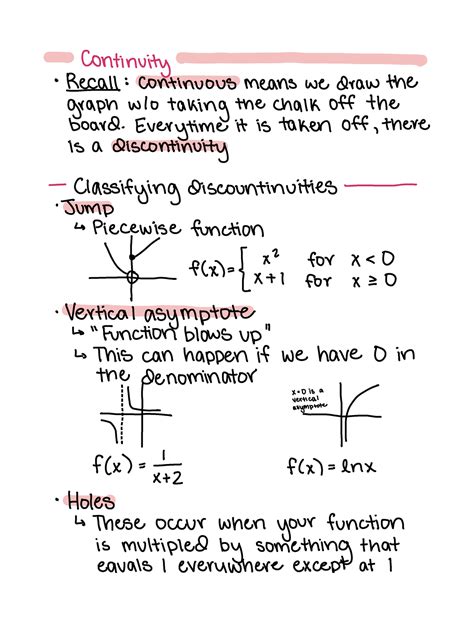 Continuity
• Recall: continuous means we draw the
graph w/o taking the chalk off the
board. Everytime it is taken off, there
is a discontinuity
Classifying discountinuities
• Jump
↳ Piecewise function
f(x) = { x² for x < 0
x+1 for x ≥ 0
• Vertical asymptote
↳ "Function blows up"
↳ This can happen if we have 0 in
the denominator
x=0 is a
vertical
asymptote
f(x) = 1/x+2
f(x) = lnx
• Holes
↳ These occur when your function
is multipled by something that
equals 1 everywhere except at 1